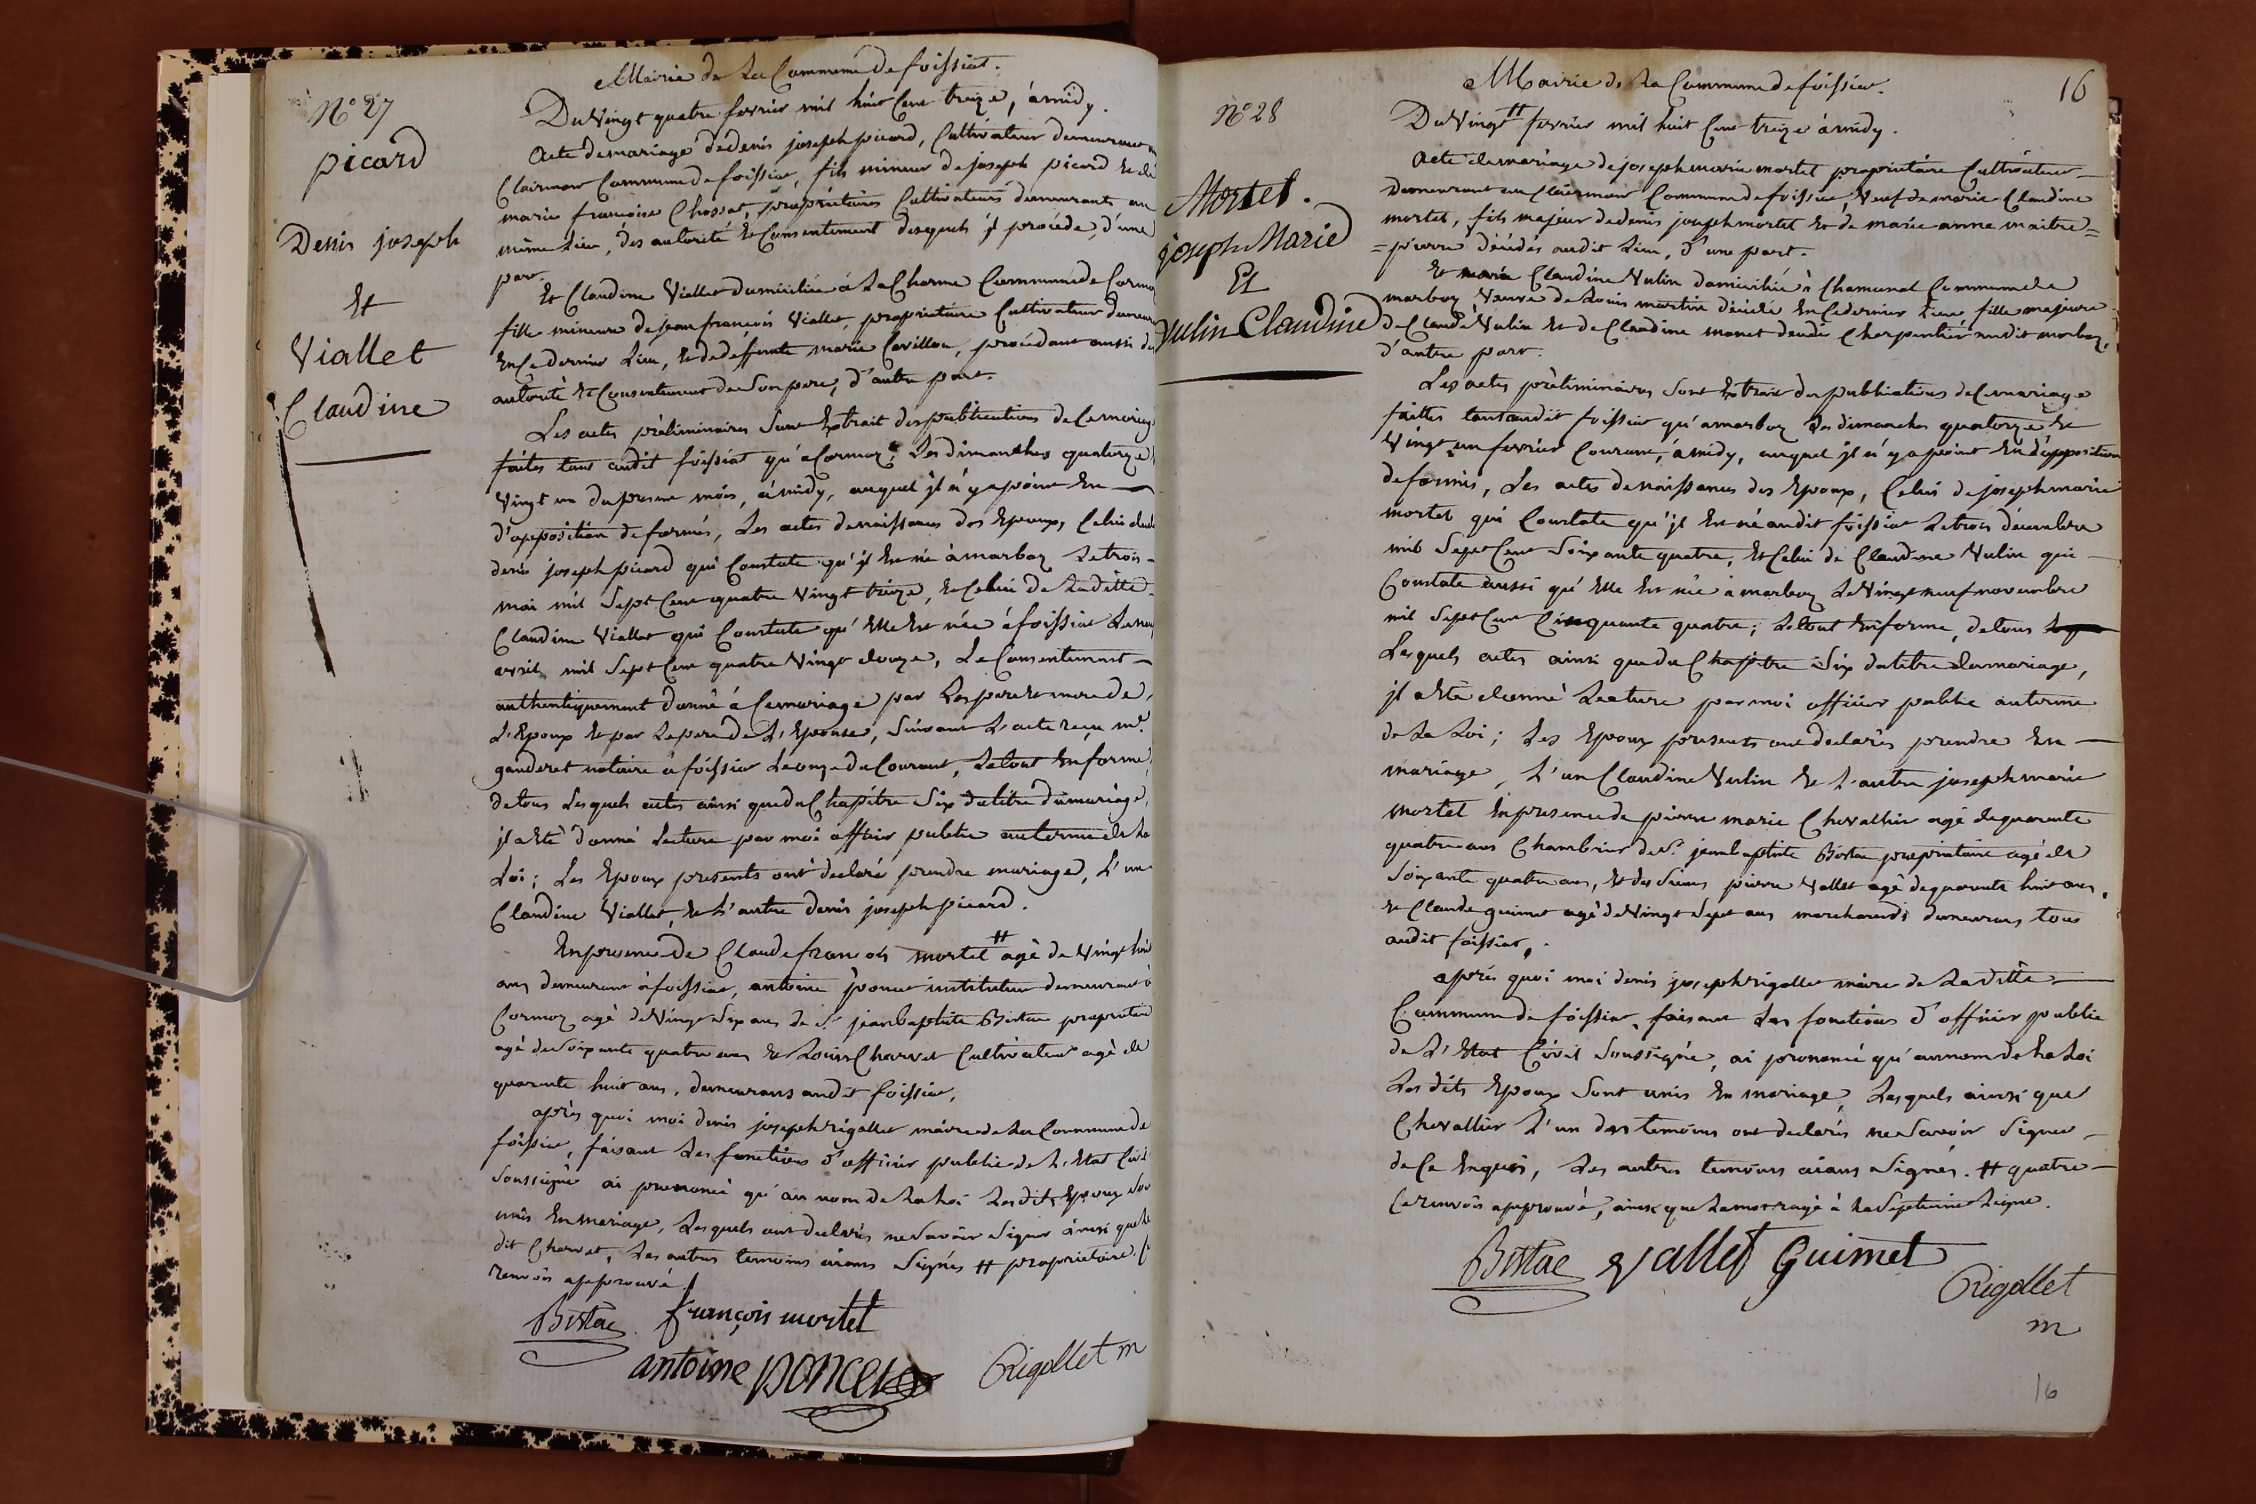 Mairie de La Commune de foissiat.
N° 27
picard
Denis joseph
Et
Viallet
Claudine
Du Vingt quatre fevrier mil huit Cent treize, à midy.
Acte de mariage de denis joseph picard, Cultivateur demeurant
Clairmon Commune de foissiat, fils mineur de joseph picard Et de
marie francoise Chossat, propriétaires Cultivateurs demeurants au
même Lieu, des autorité Et Consentement desquels jl procéde, d'une
part.
Et Claudine Viallet domiciliée à La Charme Commune de Cormoz
fille mineure de jean françois Viallet, propriétaire Cultivateur demeurant
En Ce dernier Lieu, Et de deffunte marie Cavillon, procédant aussi des
autorité Et Consentement de Son pere, d'autre part.
Les actes préliminaires Sont Extrait des publications de Ce mariage
faites tant audit foissiat qu'a Cormoz, Les dimanches quatorze
Vingt un du present mois, à midy, auquel jl n'y a point Eu
d'opposition de formés, Les actes de naissances des Epoux, Celui dudit
denis joseph picard qui Constate qu'jl Est né à marboz Le trois
mai mil Sept Cent quatre Vingt treize, Et Celui de Laditte
Claudine Viallet qui Constate qu'Elle Est née à foissiat Le neuf
avril mil Sept Cent quatre Vingt douze, Le Consentement
authentiquement donné à Ce mariage par Les pere Et mere de
L'Epoux Et par Le pere de L'Epouse, Suivant L'acte reçu me.
ganderet notaire à foissiat Le onze du Courant, Le tout En forme,
de tous Lesquels actes ainsi que du Chapitre Six du titre du mariage,
jl a Eté donné Lecture par moi officier public au terme de La
Loi; Les Epoux presents ont declaré prendre mariage, L'un
Claudine Viallet, Et L'autre denis joseph picard.
En presence de Claude francois mortel # agé de Vingt huit
ans demeurant à foissiat, antoine poncet instituteur demeurant à
Cormoz agé de Vingt Six ans de Sr. jean baptiste Bistac propriétaire
agé de Soixante quatre ans Et Louis Charvet Cultivateur agé de
quarante huit ans, demeurans audit foissiat,
après quoi moi denis joseph rigollet maire de La Commune de
foissiat, faisant Les fonctions d'officier public de L'Etat Civil
Soussigné ai prononcé qu'au nom de La Loi Les dits Epoux Sont
unis En mariage, Lesquels ont declarés ne Savoir Signer ainsi que Le
dit Charvet, Les autres temoins aiant Signés # propriétaire. Ce
renvois approuvé
Bistac françois mortel
antoine poncet Rigollet m
16
Mairie de La Commune de foissiat.
N° 28
Mortel.
joseph Marie
Et
Vulin Claudine
Du Vingt # fevrier mil huit Cent treize à midy.
Acte de mariage de joseph marie mortel propriétaire Cultivateur
demeurant au Clairmon Commune de foissiat, Veuf de marie Claudine
mortel, fils majeur de denis joseph mortel Et de marie anne maitre=
=pierre décédés audit Lieu, d'une part.
Et Claudine Vulin domiciliée à Chamanal Commune de
marboz Veuve de Louis martin décédé En Ce dernier Lieu fille majeure
de Claude Vulin Et de Claudine monet deudé Charpentier audit marboz,
d'autre part.
Les actes préliminaires Sont Extrait des publications de Ce mariage
faittes tant audit foissiat qu'à marboz Les dimanches quatorze Et
Vingt un fevrier Courant, à midy, auquel jl n'y a point Eu d'opposition
de formés, Les actes de naissances des Epoux, Celui de joseph marie
mortel qui Constate qu'jl Est né audit foissiat Le trois décembre
mil Sept Cent Soixante quatre, Et Celui de Claudine Vulin qui
Constate aussi qu'Elle Est née à marboz Le Vingt neuf novembre
mil Sept Cent Cinquante quatre; Le tout En forme, de tous
Lesquels actes ainsi que du Chapitre Six du titre du mariage,
jl a Eté donné Lecture par moi officier public au terme
de La Loi; Les Epoux presents ont declarés prendre En
mariage, L'un Claudine Vulin Et L'autre joseph marie
mortel En presence de pierre marie Chevallier agé de quarante
quatre ans Chambrier de Sr. jean baptiste Bistac propriétaire agé de
Soixante quatre ans, Et des Sieurs pierre Vallet agé de quarante huit ans,
Et Claude guimet agé de Vingt Sept ans marchands demeurans tous
audit foissiat.
après quoi moi denis joseph rigollet maire de Laditte
Commune de foissiat, faisant Les fonctions d'officier public
de L'Etat Civil Soussigné, ai prononcé qu'au nom de La Loi
Les dits Epoux Sont unis En mariage, Lesquels ainsi que
Chevallier L'un des temoins ont declarés ne Savoir Signer
de Ce Enquis, Les autres temoins aians Signés. # quatre
Ce renvois approuvé, ainsi que Le mot rayé à La Septieme Ligne.
Bistac Vallet Guimet
Rigollet
m
16